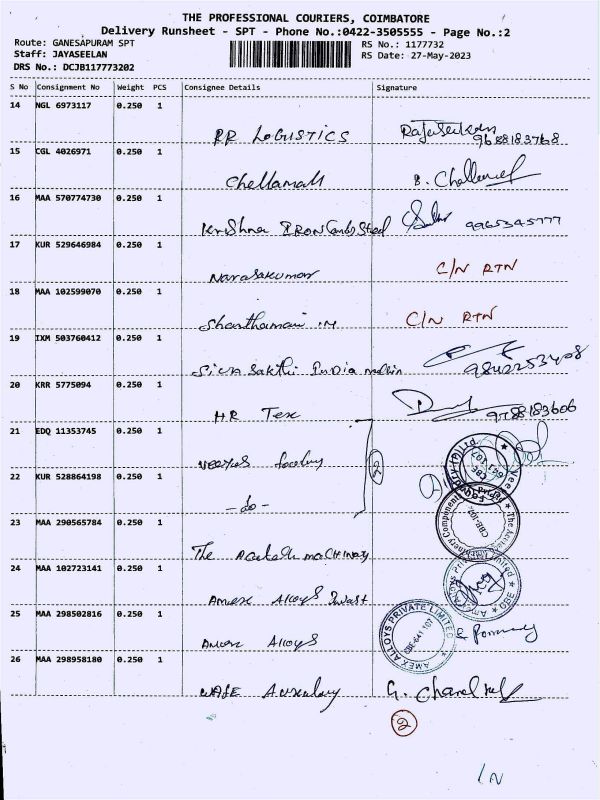 THE PROFESSIONAL COURIERS, COIMBATORE
Delivery Runsheet - SPT - Phone No.:0422-3505555 - Page No.:2
Route: GANESAPURAM SPT
RS No.: 1177732
Staff: JAYASEELAN
RS Date: 27-May-2023
DRS No.: DCJB117773202
S No Consignment No Weight PCS Consignee Details Signature
14 NGL 6973117 0.250 1
RR LOGISTICS
15 CGL 4026971 0.250 1
Chellamall B.
16 MAA 570774730 0.250 1
Krishna IRON and Steel 9965345777
17 KUR 529646984 0.250 1
Narasakumar C/N RTN
18 MAA 102599070 0.250 1
Shanthamani C/N RTN
19 IXM 503760412 0.250 1
Siva Sakthi India 9842253408
20 KRR 5775094 0.250 1
HR Tex 9788183606
21 EDQ 11353745 0.250 1
22 KUR 528864198 0.250 1
2
-do-
23 MAA 290565784 0.250 1
The
24 MAA 102723141 0.250 1
Amex Alloys
25 MAA 298502816 0.250 1
Amex Alloys
AMEX ALLOYS PRIVATE LIMITED
CBE-641 107
26 MAA 298958180 0.250 1
G.
2